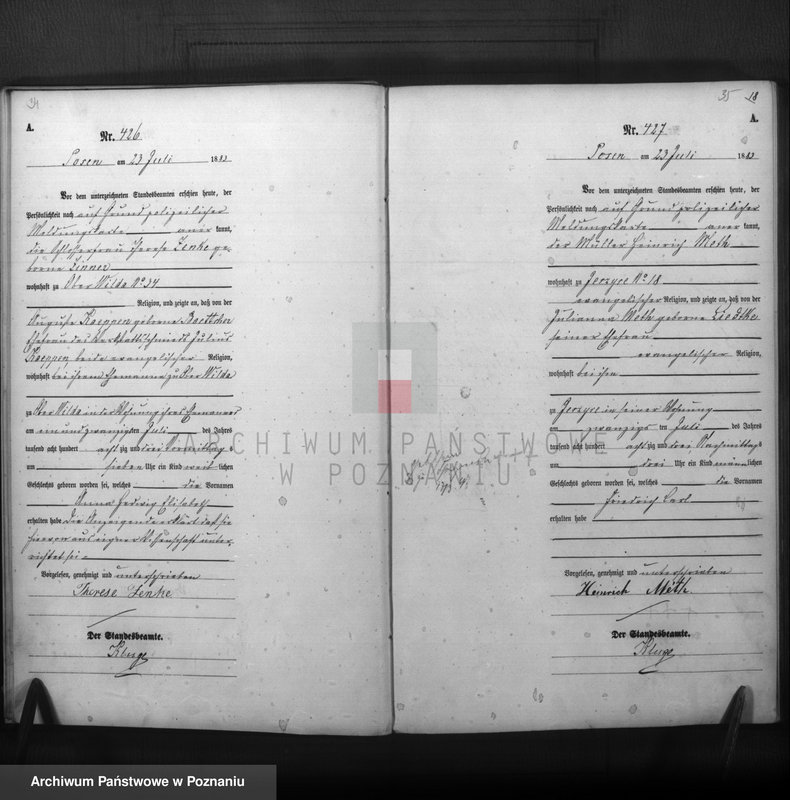 34
A.
Nr. 426
Posen am 23 Juli 1883
Vor dem unterzeichneten Standesbeamten erschien heute, der
Persönlichkeit nach auf Grund polizeilicher
Meldungskarte anerkannt,
die Schlosserfrau Therese Zenke ge-
borene Zinner
wohnhaft zu Ober Wilda No 34
Religion, und zeigte an, daß von der
Auguste Koeppen geborene Boettcher
Ehefrau des Julius
Koeppen beide evangelischer Religion,
wohnhaft bei ihrem Ehemanne zu Ober Wilda
zu Ober Wilda in der Wohnung ihres Ehemannes
am ein und zwanzigsten Juli des Jahres
tausend acht hundert achtzig und drei Vormittags
um sieben Uhr ein Kind weiblichen
Geschlechts geboren worden sei, welches die Vornamen
Anna Hedwig Elisabeth
erhalten habe Die Anzeigende erklärt daß sie
hiervon aus eigener Wissenschaft unter-
richtet sei
Vorgelesen, genehmigt und unterschrieben
Therese Zenke
Der Standesbeamte.
Kluge
35 18
A.
Nr. 427
Posen am 23 Juli 1883
Vor dem unterzeichneten Standesbeamten erschien heute, der
Persönlichkeit nach auf Grund polizeilicher
Meldungskarte anerkannt,
der Müller Heinrich Meth
wohnhaft zu Jerzyce No 18
evangelischer Religion, und zeigte an, daß von der
Julianna Meth geborene Liedtke
seiner Ehefrau
evangelischer Religion,
wohnhaft bei ihm
zu Jerzyce in seiner Wohnung
am zwanzigsten Juli des Jahres
tausend acht hundert achtzig und drei Nachmittags
um drei Uhr ein Kind männlichen
Geschlechts geboren worden sei, welches die Vornamen
Friedrich Carl
erhalten habe
Vorgelesen, genehmigt und unterschrieben
Heinrich Meth
Der Standesbeamte.
Kluge
ARCHIWUM PAŃSTWOWE
W POZNANIU
Archiwum Państwowe w Poznaniu